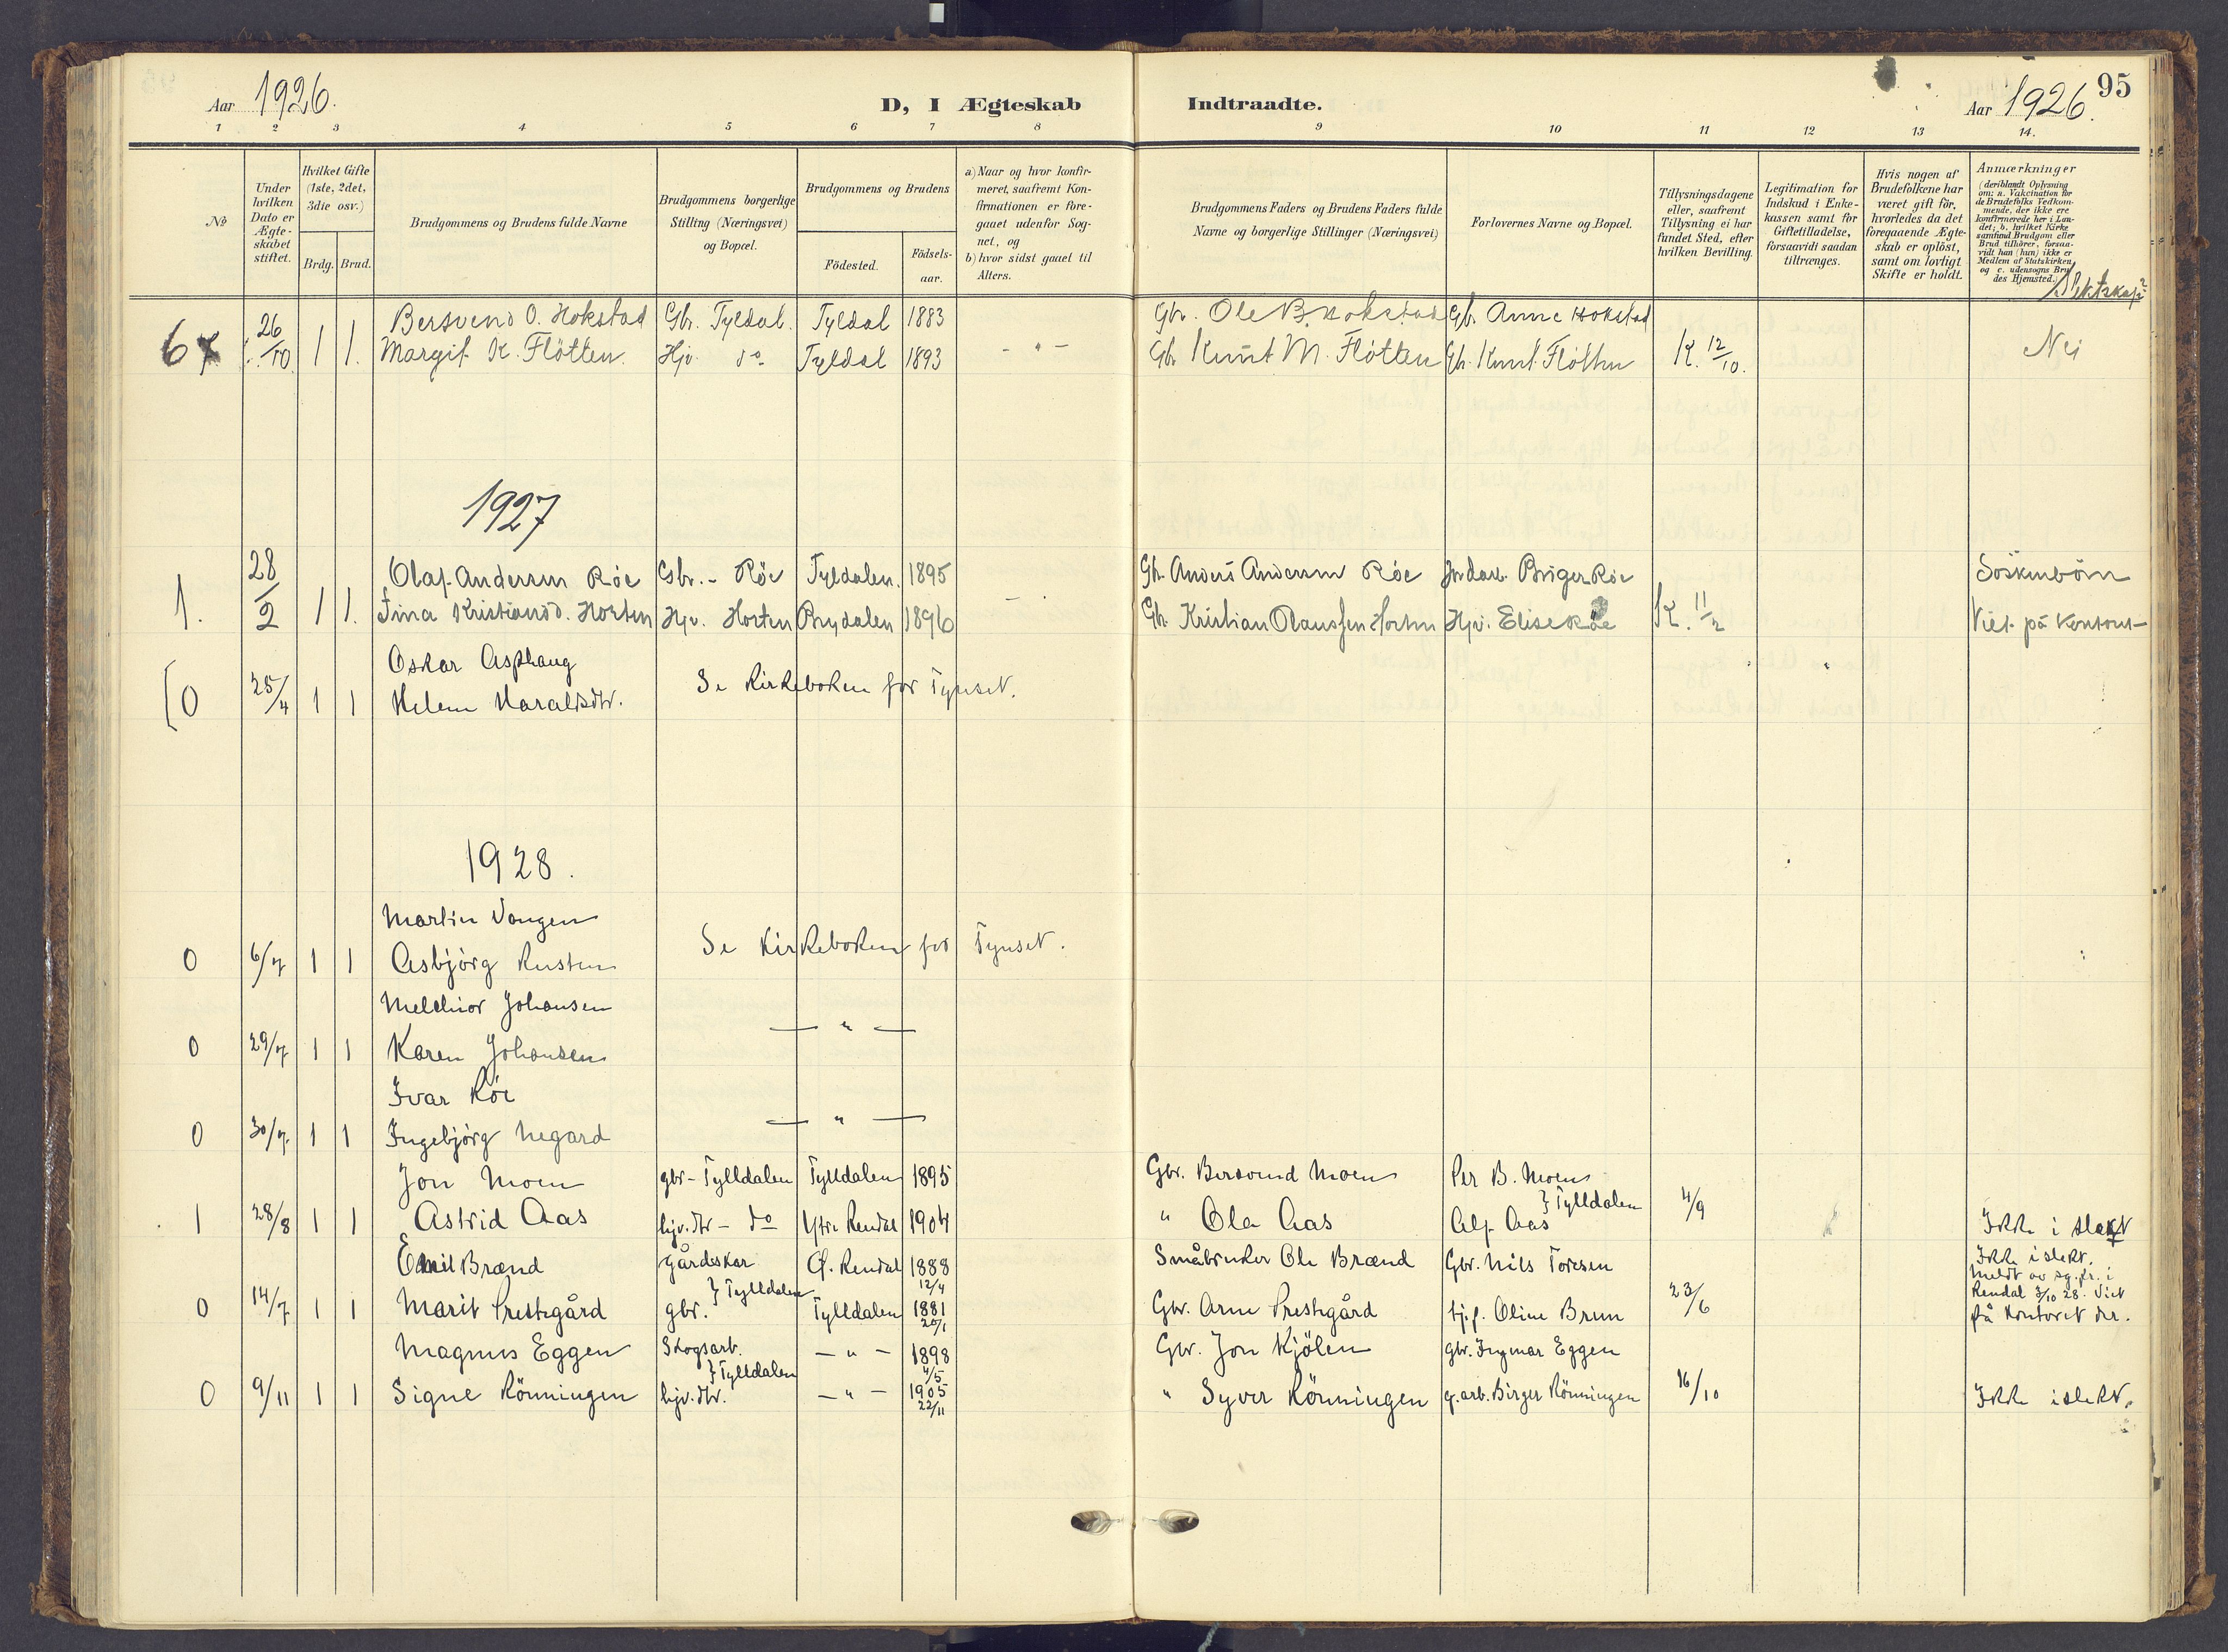 Aar 1926.
D, I Ægteskab
Indtraadte.
Aar 1926.
95
1 2 3 4 5 6 7 8 9 10 11 12 13 14.
No
Under
hvilken
Dato er
Ægte-
skabet
stiftet.
Hvilket Gifte
(1ste, 2det,
3die osv.)
Brdg. Brud.
Brudgommens og Brudens fulde Navne
Brudgommens borgerlige
Stilling (Næringsvei)
og Bopæl.
Brudgommens og Brudens
Födested.
Födsels-
aar.
a) Naar og hvor konfir-
meret, saafremt Kon-
firmationen er fore-
gaaet udenfor Sog-
net, og
b) hvor sidst gaaet til
Alters.
Brudgommens Faders og Brudens Faders fulde
Navne og borgerlige Stillinger (Næringsvei)
Forlovernes Navne og Bopæl.
Tillysningsdagene
eller, saafremt
Tillysning ei har
fundet Sted, efter
hvilken Bevilling.
Legitimation for
Indskud i Enke-
kassen samt for
Giftetilladelse,
forsaavidt saadan
tiltrænges.
Hvis nogen af
Brudefolkene har
været gift för,
hvorledes da det
foregaaende Ægte-
skab er oplöst,
samt om lovligt
Skifte er holdt.
Anmærkninger
(deriblandt Oplysning
om: a. Vakcination for
de Brudefolks Vedkom-
mende, der ikke ere
konfirmerede her i Lan-
det; b. hvilket Kirke
samfund Brudgom eller
Brud tilhører, forsaa-
vidt han (hun) ikke er
Medlem af Statskirken
og c. udensogns Bru-
des Hjemsted.)
Slektskap?
26 Bersvend O. Hokstad Gbr. Tyldal. Tyldal 1883 Gbr. Ole B. Hokstad Gb. Anne Hokstad
6 /10 1 1. Margit K. Flötten. Hjv. do Tyldal 1893 - " - Gb. Knut M. Flötten Gb. Knut Flötten K. 12/10. Nei
1927
28 Olaf Andersen Röe Gbr. - Röe Tyldalen. 1895 Gb. Anders Andersen Röe Jordarb. Birger Röe Söskenbörn
1. /2 1 1. Tina Kristiansd. Horten Hjv. Horten Brydalen 1896 - Gb. Kristian Olaussen Horten Hjv. Elise Röe K. 11/2 Viet på kontoret
Oskar Asphaug
0 25/4 1 1 Helene Haraldsdtr. Se kirkeboken for Tynset.
1928.
Martin Vangen
0 6/7 1 1 Asbjörg Rusten Se kirkeboken for Tynset.
Melchior Johansen
0 29/7 1 1 Karen Johansen — " —
Ivar Röe
0 30/7. 1 1 Ingebjörg Negard — " —
Jon Moen gbr - Tylldalen Tylldalen 1895 Gbr. Bersvend Moen Per B. Moen
} Tylldalen
1 28/8 1 1 Astrid Aas hjv. dtr - do Ytre Rendal 1904 " Ola Aas Alf Aas 4/9 Ikke i slekt
Emil Brænd gårdskar Ø. Rendal 1888 Småbruker Ole Brænd Gbr. Nils Toresen Ikke i slekt.
} Tylldalen 12/4 Meldt av sg.pr. i
0 14/7 1 1 Marit Prestegård gbr. Tylldalen 1881 Gbr. Arne Prestegård tj.p. Oline Brun 23/6 Rendal 3/10 28. Viet
20/1 på kontoret der.
Magnus Eggen Skogsarb. — " — 1898 Gbr. Jon Kjölen gbr. Ingmar Eggen
} Tylldalen 4/5
0 9/11 1 1 Signe Rönningen hjv. dtr. — " — 1905 " Syver Rönningen g.arb. Birger Rönningen 16/10 Ikke i slekt.
22/11